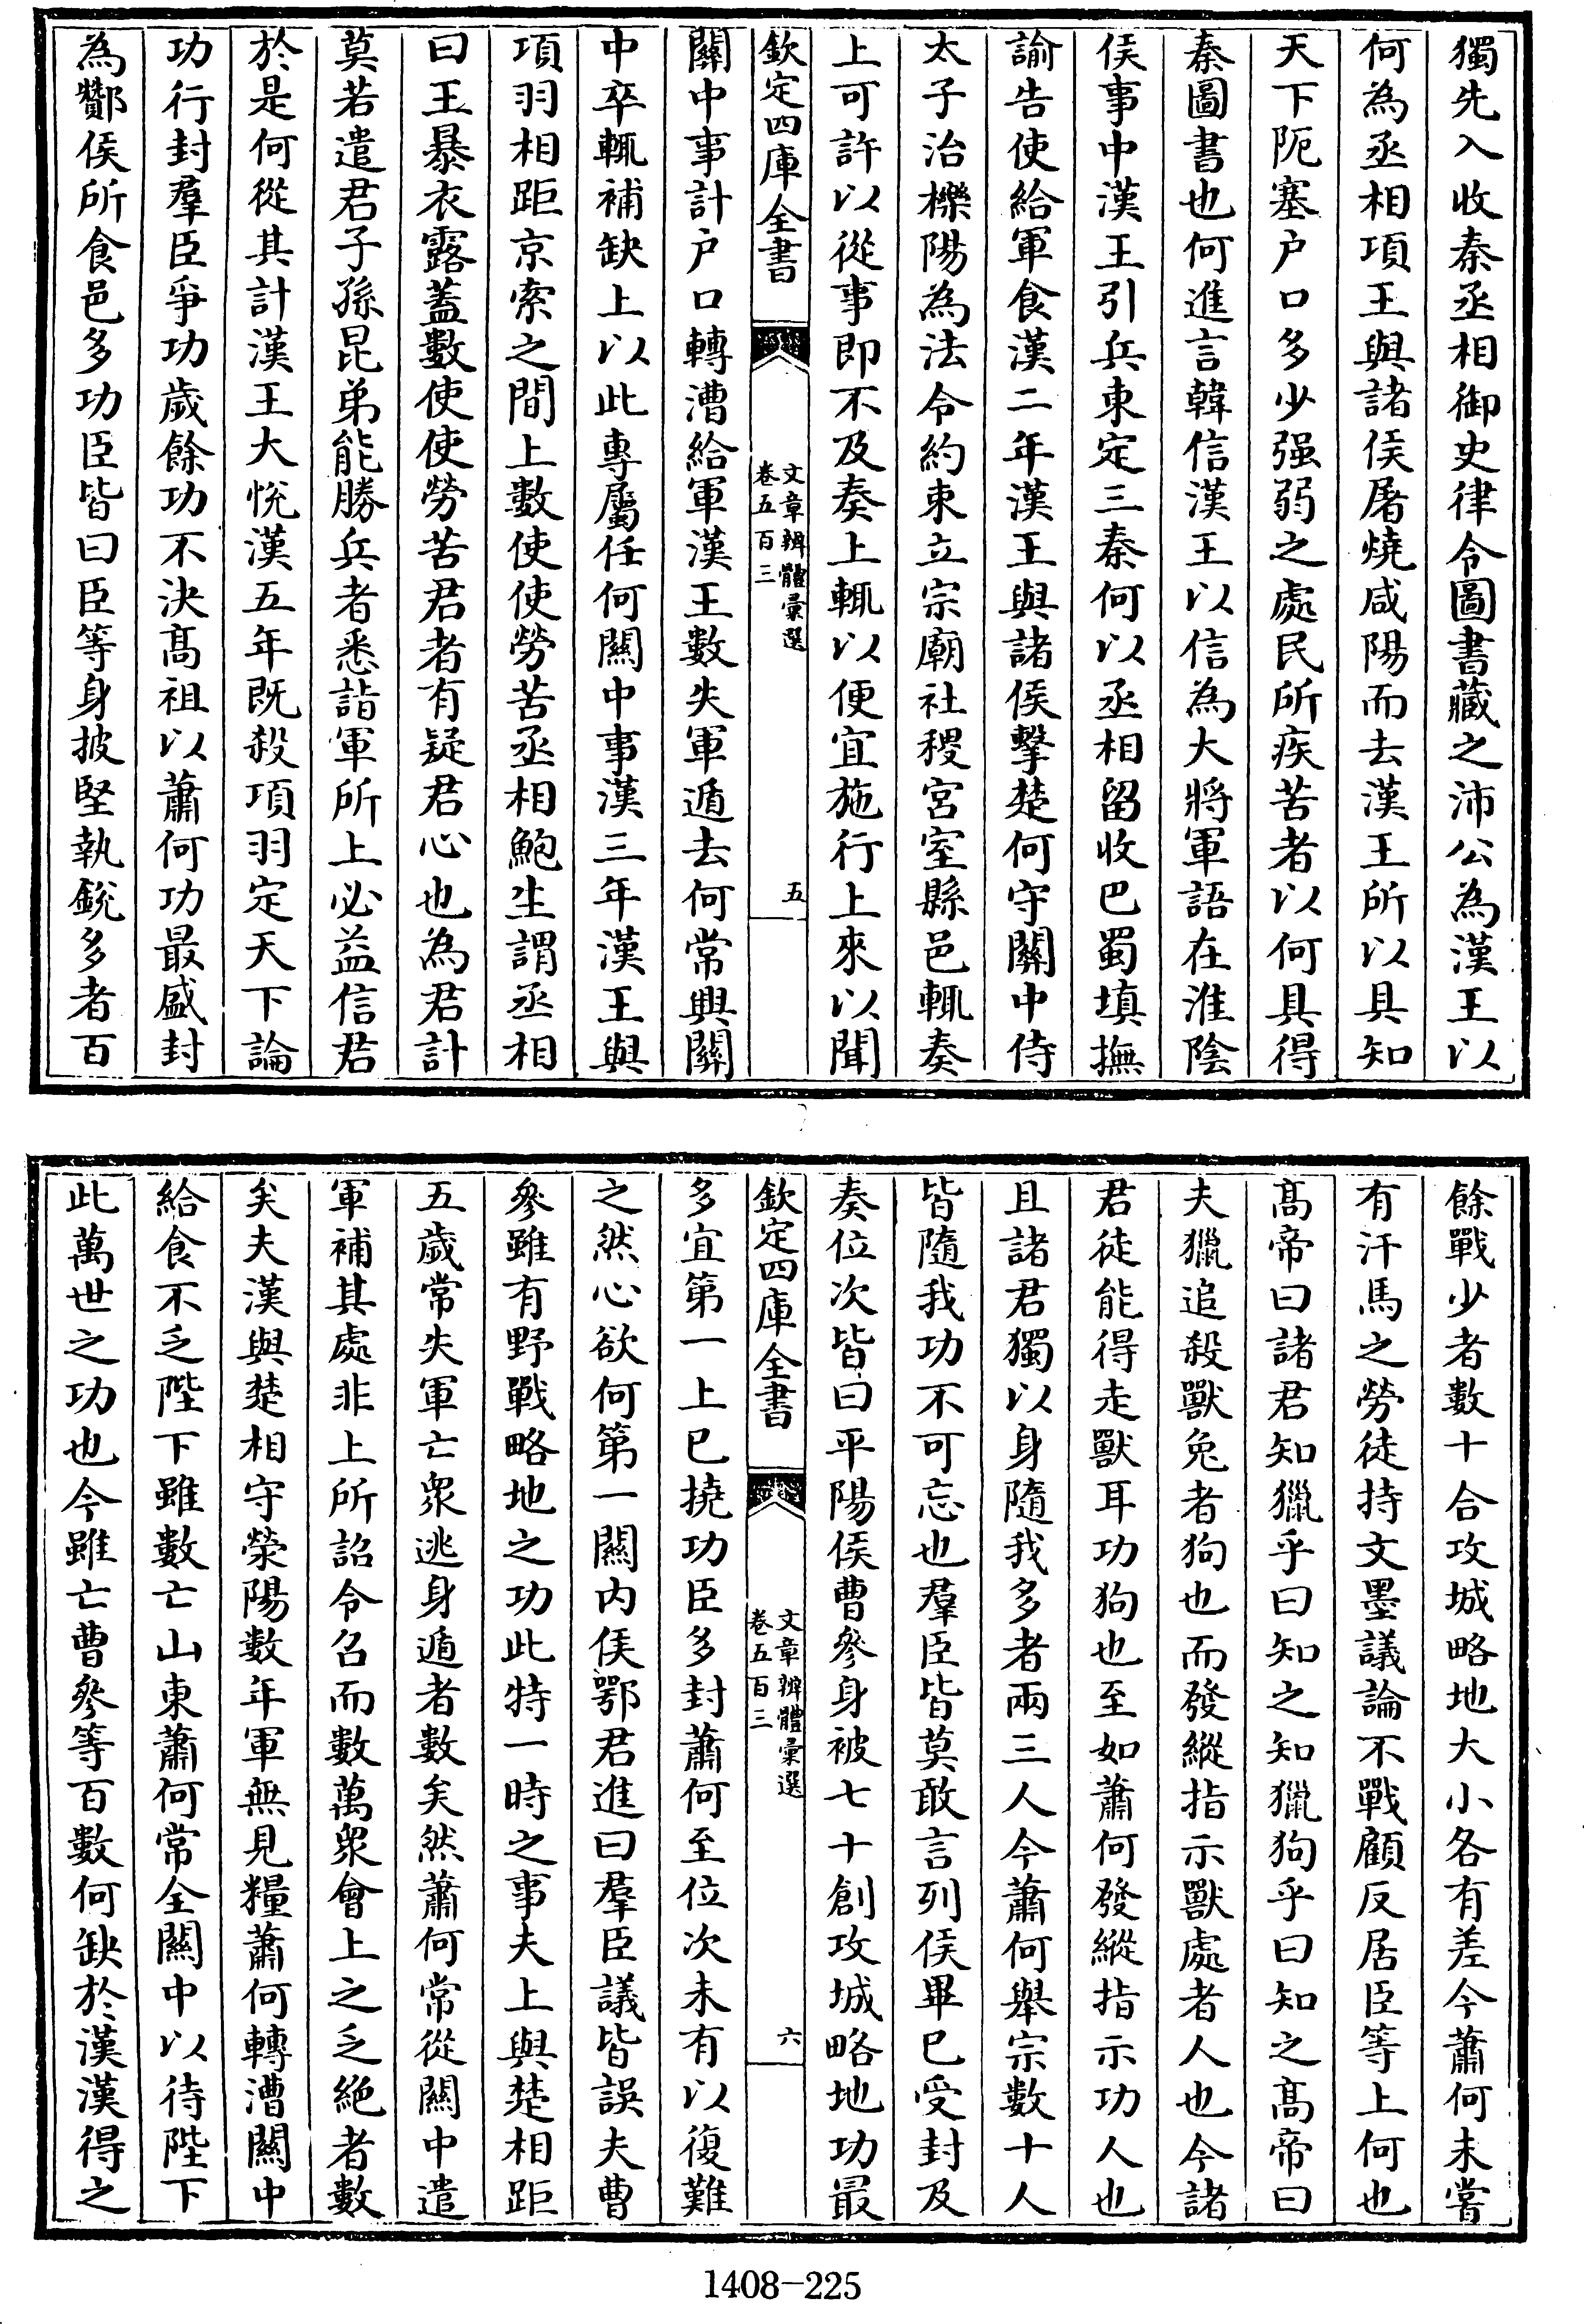 獨先入收秦丞相御史律令圖書藏之沛公為漢王以
何為丞相項王與諸侯屠燒咸陽而去漢王所以具知
天下阨塞户口多少强弱之處民所疾苦者以何具得
秦圖書也何進言韓信漢王以信為大將軍語在淮陰
侯事中漢王引兵東定三秦何以丞相留收巴蜀填撫
諭告使給軍食漢二年漢王與諸侯擊楚何守關中侍
太子治櫟陽為法令約束立宗廟社稷宮室縣邑輒奏
上可許以從事即不及奏上輒以便宜施行上來以聞
欽定四庫全書
文章辨體彙選
卷五百三
五
關中事計户口轉漕給軍漢王數失軍遁去何常興關
中卒輒補缺上以此專屬任何關中事漢三年漢王與
項羽相距京索之間上數使使勞苦丞相鮑生謂丞相
曰王暴衣露蓋數使使勞苦君者有疑君心也為君計
莫若遣君子孫昆弟能勝兵者悉詣軍所上必益信君
於是何從其計漢王大悅漢五年既殺項羽定天下論
功行封羣臣爭功歲餘功不決髙祖以蕭何功最盛封
為酇侯所食邑多功臣皆曰臣等身披堅執銳多者百
餘戰少者數十合攻城略地大小各有差今蕭何未嘗
有汗馬之勞徒持文墨議論不戰顧反居臣等上何也
髙帝曰諸君知獵乎曰知之知獵狗乎曰知之髙帝曰
夫獵追殺獸兔者狗也而發縱指示獸處者人也今諸
君徒能得走獸耳功狗也至如蕭何發縱指示功人也
且諸君獨以身隨我多者兩三人今蕭何舉宗數十人
皆隨我功不可忘也羣臣皆莫敢言列侯畢已受封及
奏位次皆曰平陽侯曹參身被七十創攻城略地功最
欽定四庫全書
文章辨體彙選
卷五百三
六
多宜第一上已撓功臣多封蕭何至位次未有以復難
之然心欲何第一關內侯鄂君進曰羣臣議皆誤夫曹
參雖有野戰略地之功此特一時之事夫上與楚相距
五歲常失軍亡衆逃身遁者數矣然蕭何常從關中遣
軍補其處非上所詔令召而數萬衆會上之乏絶者數
矣夫漢與楚相守滎陽數年軍無見糧蕭何轉漕關中
給食不乏陛下雖數亡山東蕭何常全關中以待陛下
此萬世之功也今雖亡曹參等百數何缺於漢漢得之
1408-225